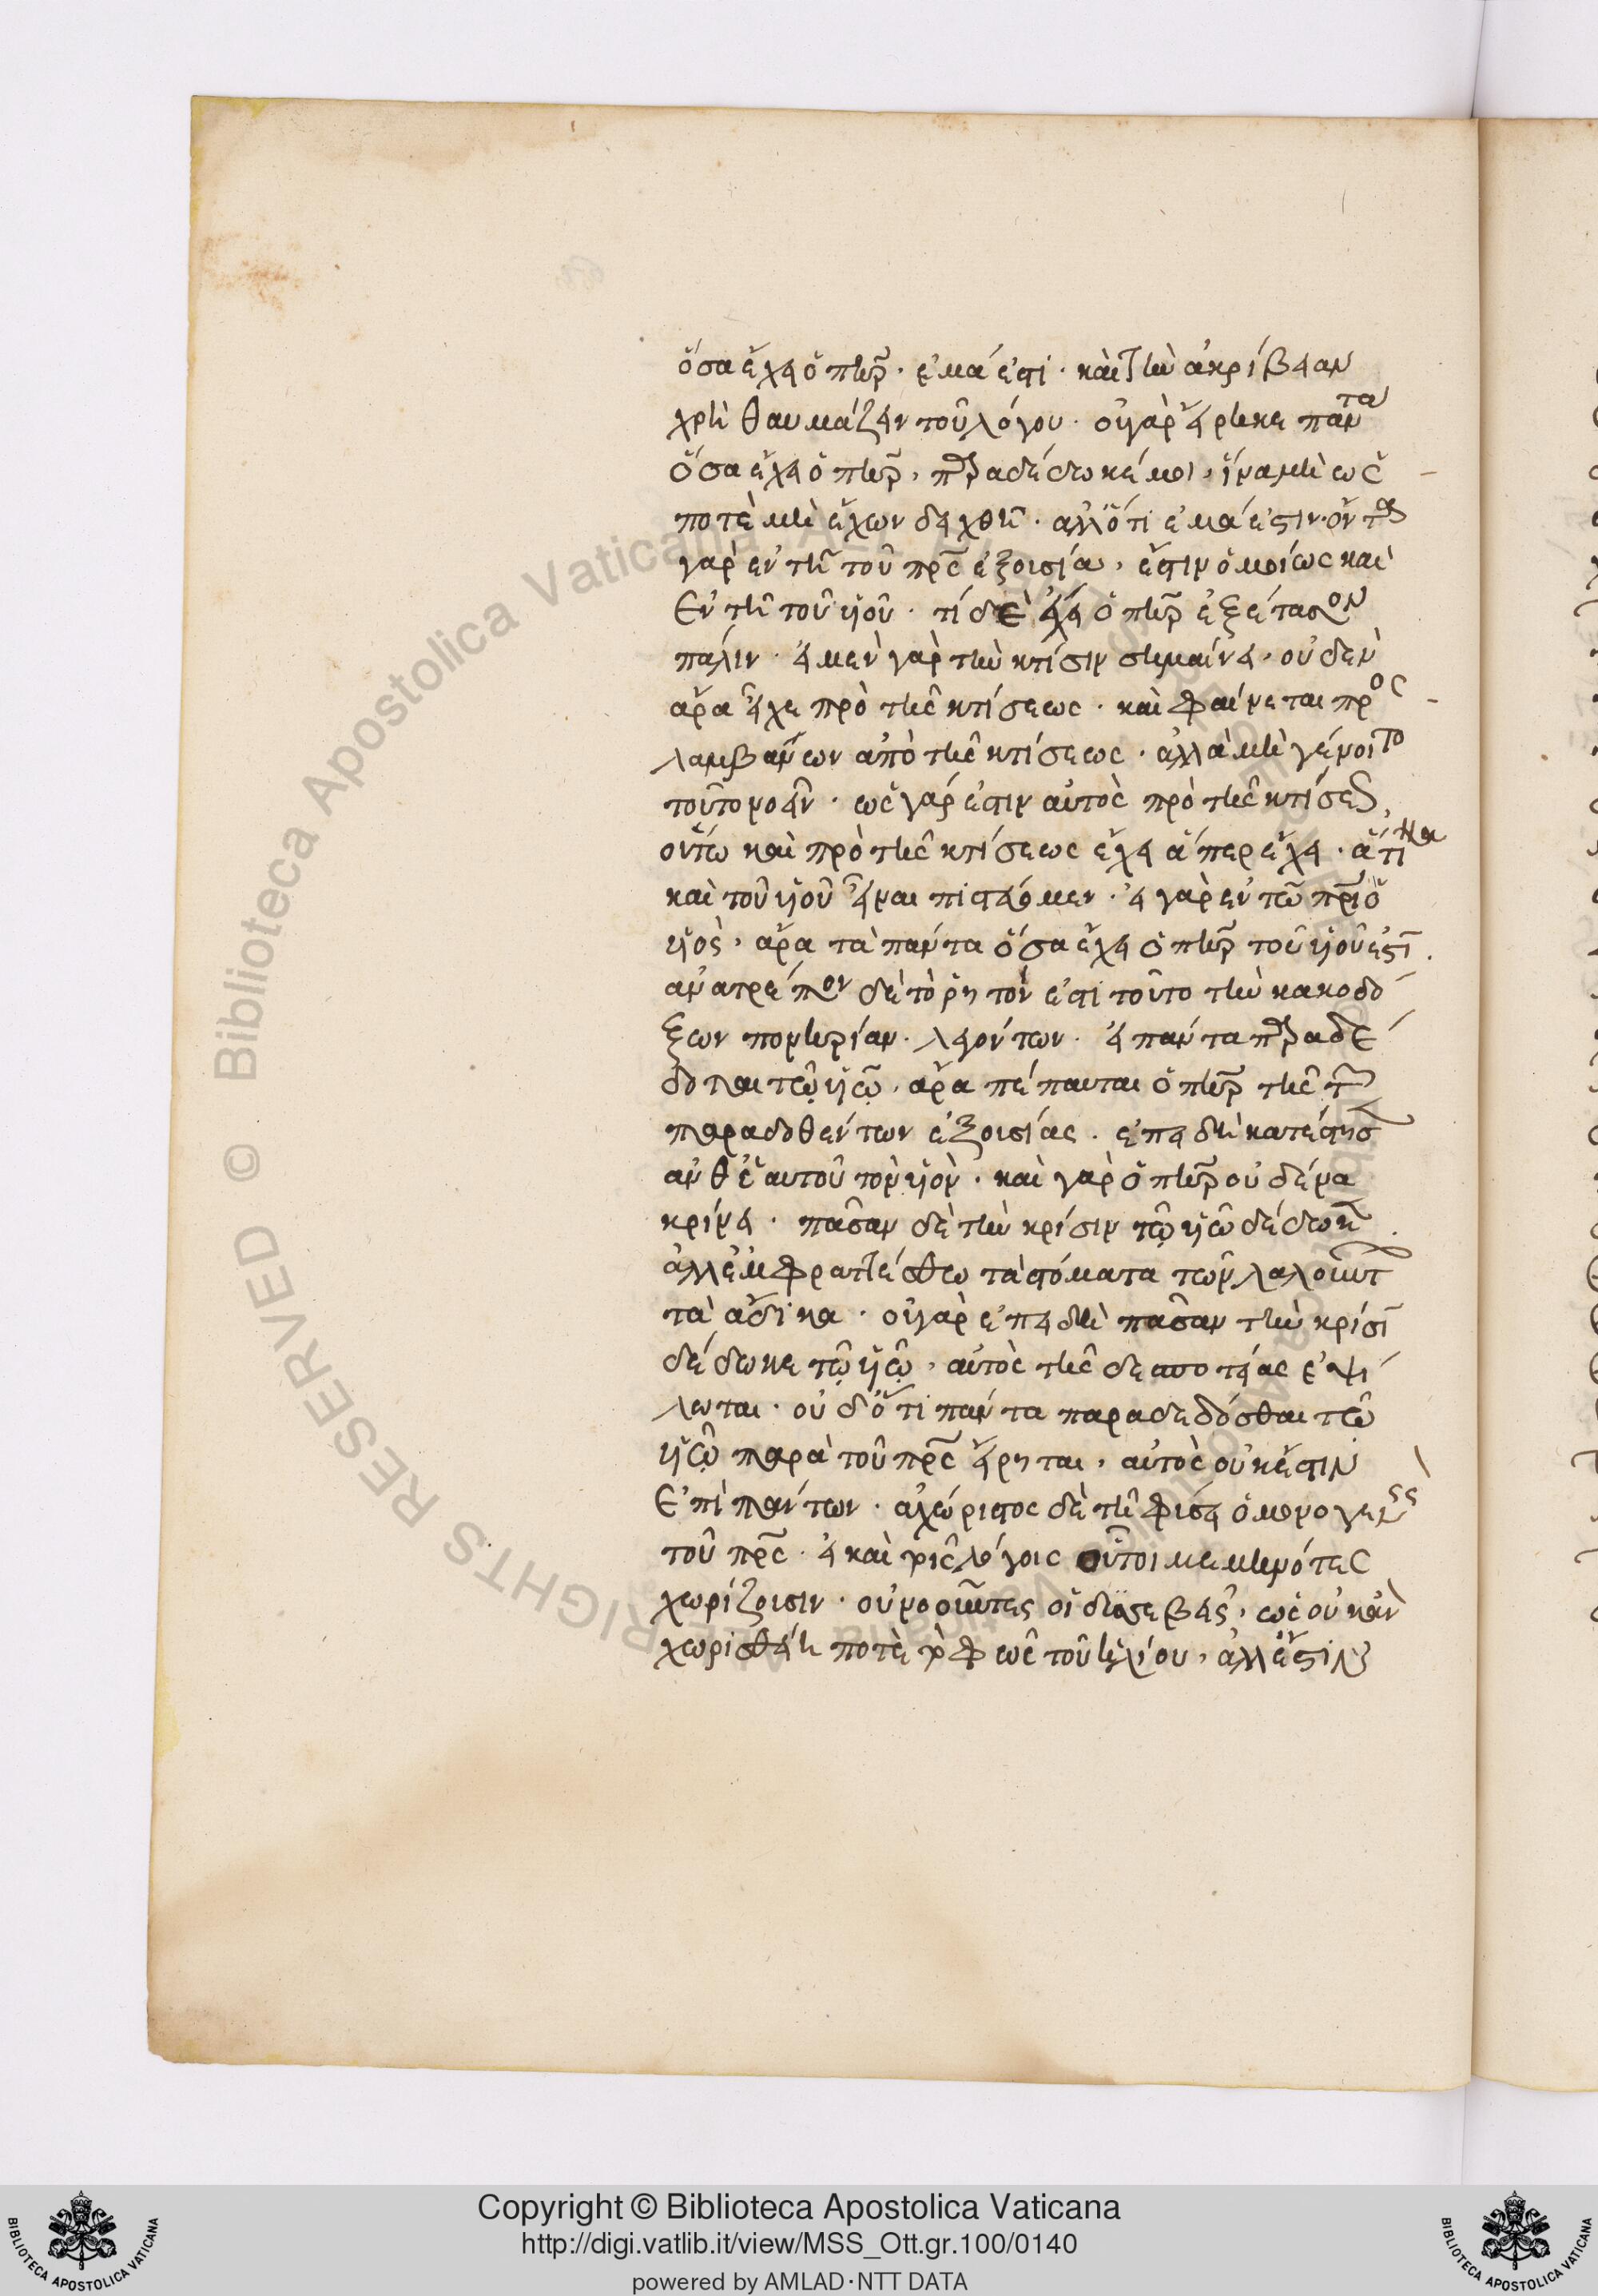 ὅσα ἔχει ὁ πηρ̅ · ἐμά ἐστι · καὶ τὴν ἀκρίβειαν
χρὴ θαυμάζειν τοῦ λόγου · οὐ γὰρ εἴρηκε πάντα
ὅσα ἔχει ὁ πηρ̅, παραδέδωκέ μοι, ἵνα μὴ ὡς
ποτὲ μὴ ἔχων δειχθῆ · ἀλλ' ὅτι ἐμά ἐστιν · ὄντα
γὰρ ἐν τῆ τοῦ πρς̅ ἐξουσία, ἔστιν ὁμοίως καὶ
ἐν τῆ τοῦ υἱοῦ · τί δὲ ἔχει ὁ πηρ̅ ἐξέτασον
πάλιν · εἰ μὲν γὰρ τὴν κτίσιν σημαίνει, οὐδὲν
ἄρα εἶχε πρὸ τῆς κτίσεως · καὶ φαίνεται προσ
λαμβάνων ἀπὸ τῆς κτίσεως · ἀλλὰ μὴ γένοιτο
τοῦτο νοεῖν · ὡς γάρ ἐστιν αὐτὸς πρὸ τῆς κτίσεως,
οὕτω καὶ πρὸ τῆς κτίσεως ἔχει ἅπερ ἔχει · ἅτινα
καὶ τοῦ υἱοῦ εἶναι πιστεύομεν · εἰ γὰρ ἐν τῶ πρι̅ ὁ
υἱὸς, ἄρα τὰ πάντα ὅσα ἔχει ὁ πηρ̅ τοῦ υἱοῦ ἐστι̅ .
ἀνατρέπον δὲ τὸ ρητόν ἐστι τοῦτο τὴν κακοδό
ξων πονηρίαν · λεγόντων · εἰ πάντα παραδέ
δοται τῶ υἱῶ, ἄρα πέπαυται ὁ πηρ̅ τῆς τῶν
παραδοθέντων ἐξουσίας · ἐπειδὴ κατέστησεν
ἀνθ' ἑαυτοῦ τὸν υἱὸν · καὶ γὰρ ὁ πηρ̅ οὐδένα
κρίνει · πᾶσαν δὲ τὴν κρίσιν τῶ υἱῶ δέδωκε .
ἀλλ' ἐμφραττέσθω τὰ στόματα τῶν λαλούντων
τὰ ἄδικα · οὐ γὰρ ἐπειδὴ πᾶσαν τὴν κρίσι̅
δέδωκε τῶ υἱῶ, αὐτὸς τῆς δεσποτείας ἐψί
λωται · οὐδ' ὅτι πάντα παραδεδόσθαι τῶ
υἱῶ παρὰ τοῦ πρς̅ εἴρηται, αὐτὸς οὐκ ἔστιν
ἐπὶ πάντων · ἀχώριστος δὲ τῆ φύσει ὁ μονογενὴς
τοῦ πρς̅ · εἰ καὶ τοῖς λόγοις οὗτοι μεμηνότες
χωρίζουσιν · οὐ νοοῦντες οἱ δυσσεβεῖς, ὡς οὐκ ἂν
χωρισθείη ποτὲ τὸ φῶς τοῦ ἡλίου, ἀλλ' ἔστιν
Copyright © Biblioteca Apostolica Vaticana
http://digi.vatlib.it/view/MSS_Ott.gr.100/0140
powered by AMLAD·NTT DATA